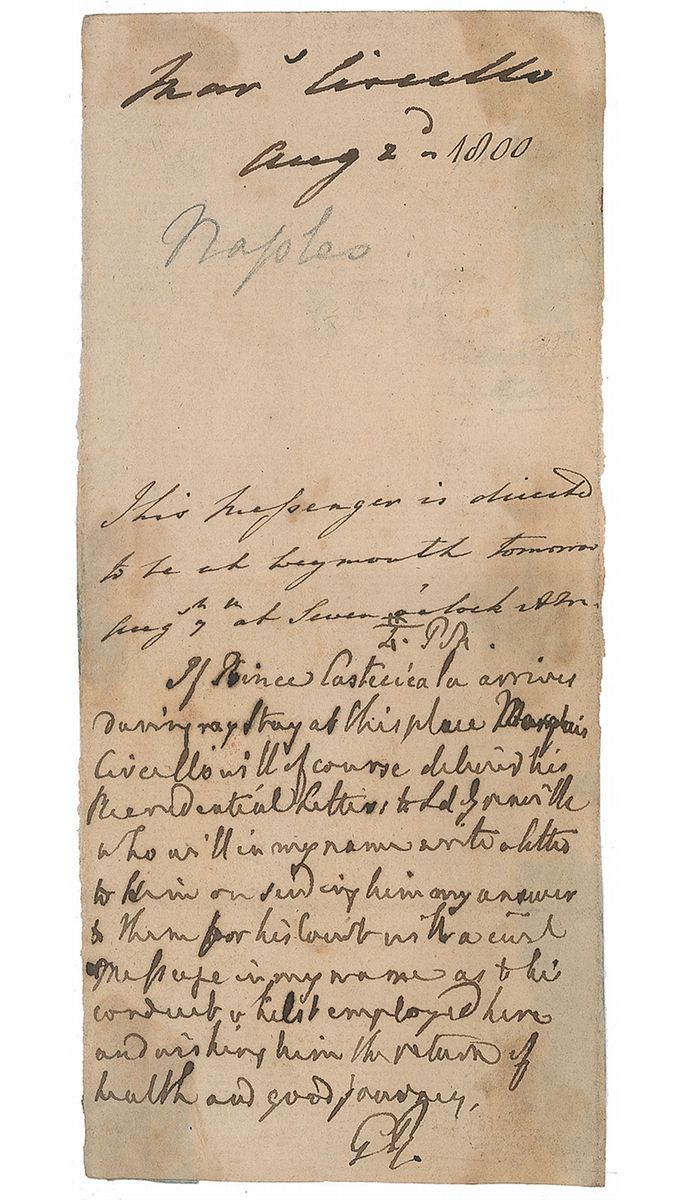 Mar^s Circello
Aug 2^d - 1800
Naples
This Messenger is directed
to be at Weymouth tomorrow
Aug^st 7^th at Seven o'clock A M.
4. P M.
If Prince Castelcicala arrives
during my stay at this place Marquis
Circello will of course deliver his
Recredential Letters to Ld Grenville
who will in my name write a letter
to Him on sending him my answer
to them for his Court with a civil
Message in my name as to his
conduct whilst employed here
and wishing him the return of
health and good journey,
G R.